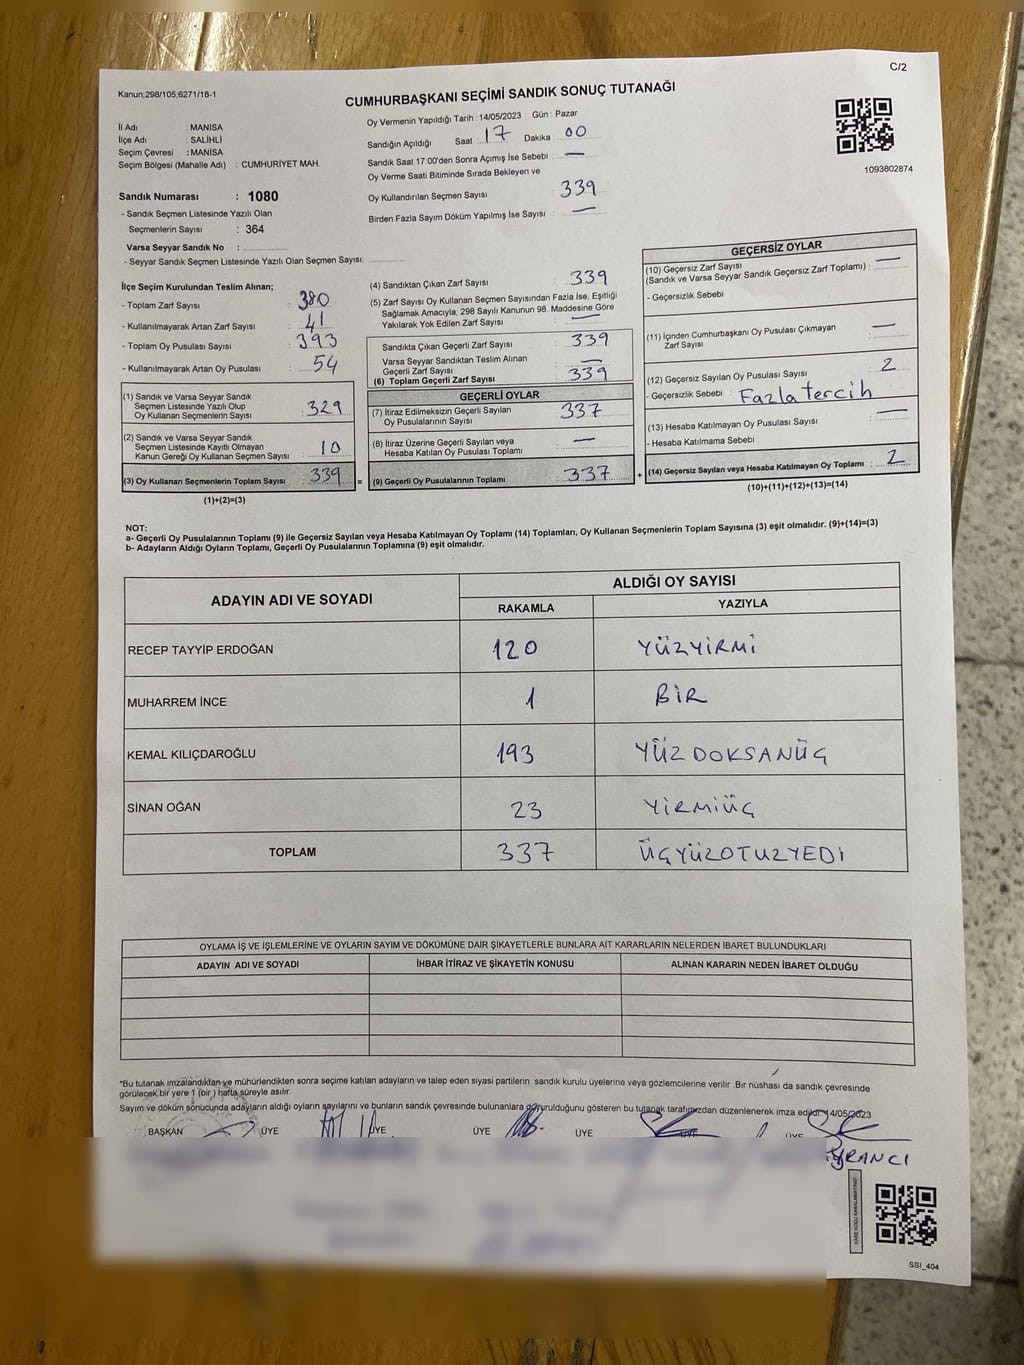 C/2
Kanun;298/105,6271/18-1
CUMHURBAŞKANI SEÇİMİ SANDIK SONUÇ TUTANAĞI
İl Adı : MANİSA
İlçe Adı : SALİHLİ
Seçim Çevresi : MANİSA
Seçim Bölgesi (Mahalle Adı) : CUMHURİYET MAH.
Oy Vermenin Yapıldığı Tarih : 14/05/2023 Gün : Pazar
Sandığın Açıldığı Saat : 17 Dakika : 00
Sandık Saat 17:00'den Sonra Açımış İse Sebebi : —
Oy Verme Saati Bitiminde Sırada Bekleyen ve
Oy Kullandırılan Seçmen Sayısı : 339
Birden Fazla Sayım Döküm Yapılmış İse Sayısı : —
1093802874
Sandık Numarası : 1080
- Sandık Seçmen Listesinde Yazılı Olan
Seçmenlerin Sayısı : 364
Varsa Seyyar Sandık No : ..............
- Seyyar Sandık Seçmen Listesinde Yazılı Olan Seçmen Sayısı: ............
İlçe Seçim Kurulundan Teslim Alınan;
- Toplam Zarf Sayısı : 380
- Kullanılmayarak Artan Zarf Sayısı : 41
- Toplam Oy Pusulası Sayısı : 393
- Kullanılmayarak Artan Oy Pusulası : 54
(1) Sandık ve Varsa Seyyar Sandık
Seçmen Listesinde Yazılı Olup
Oy Kullanan Seçmenlerin Sayısı : 329
(2) Sandık ve Varsa Seyyar Sandık
Seçmen Listesinde Kayıtlı Olmayan
Kanun Gereği Oy Kullanan Seçmen Sayısı : 10
(3) Oy Kullanan Seçmenlerin Toplam Sayısı : 339
(1)+(2)=(3)
(4) Sandıktan Çıkan Zarf Sayısı : 339
(5) Zarf Sayısı Oy Kullanan Seçmen Sayısından Fazla İse, Eşitliği
Sağlamak Amacıyla; 298 Sayılı Kanunun 98. Maddesine Göre
Yakılarak Yok Edilen Zarf Sayısı : —
Sandıkta Çıkan Geçerli Zarf Sayısı : 339
Varsa Seyyar Sandıktan Teslim Alınan
Geçerli Zarf Sayısı : —
(6) Toplam Geçerli Zarf Sayısı : 339
GEÇERLİ OYLAR
(7) İtiraz Edilmeksizin Geçerli Sayılan
Oy Pusulasının Sayısı : 337
(8) İtiraz Üzerine Geçerli Sayılan veya
Hesaba Katılan Oy Pusulası Toplamı : —
= (9) Geçerli Oy Pusulalarının Toplamı : 337
GEÇERSİZ OYLAR
(10) Geçersiz Zarf Sayısı
(Sandık ve Varsa Seyyar Sandık Geçersiz Zarf Toplamı) : —
- Geçersizlik Sebebi :
(11) İçinden Cumhurbaşkanı Oy Pusulası Çıkmayan
Zarf Sayısı : —
(12) Geçersiz Sayılan Oy Pusulası Sayısı : 2
- Geçersizlik Sebebi : Fazla tercih
(13) Hesaba Katılmayan Oy Pusulası Sayısı : —
- Hesaba Katılmama Sebebi :
+ (14) Geçersiz Sayılan veya Hesaba Katılmayan Oy Toplamı : 2
(10)+(11)+(12)+(13)=(14)
NOT:
a- Geçerli Oy Pusulalarının Toplamı (9) ile Geçersiz Sayılan veya Hesaba Katılmayan Oy Toplamı (14) Toplamları, Oy Kullanan Seçmenlerin Toplam Sayısına (3) eşit olmalıdır. (9)+(14)=(3)
b- Adayların Aldığı Oyların Toplamı, Geçerli Oy Pusulalarının Toplamına (9) eşit olmalıdır.
ADAYIN ADI VE SOYADI
ALDIĞI OY SAYISI
RAKAMLA YAZIYLA
RECEP TAYYİP ERDOĞAN 120 YÜZYİRMİ
MUHARREM İNCE 1 BİR
KEMAL KILIÇDAROĞLU 193 YÜZ DOKSANÜÇ
SİNAN OĞAN 23 YİRMİÜÇ
TOPLAM 337 ÜÇYÜZOTUZYEDİ
OYLAMA İŞ VE İŞLEMLERİNE VE OYLARIN SAYIM VE DÖKÜMÜNE DAİR ŞİKAYETLERLE BUNLARA AİT KARARLARIN NELERDEN İBARET BULUNDUKLARI
ADAYIN ADI VE SOYADI İHBAR İTİRAZ VE ŞİKAYETİN KONUSU ALINAN KARARIN NEDEN İBARET OLDUĞU
"Bu tutanak imzalandıktan ve mühürlendikten sonra seçime katılan adayların ve talep eden siyasi partilerin sandık kurulu üyelerine veya gözlemcilerine verilir. Bir nüshası da sandık çevresinde
görülecek bir yere 1 (bir ) hafta süreyle asılır.
Sayım ve döküm sonucunda adayların aldığı oyların sayılarını ve bunların sandık çevresinde bulunanlara duyurulduğunu gösteren bu tutanak tarafımızdan düzenlenerek imza edildi. 14/05/2023
BAŞKAN ÜYE ÜYE ÜYE ÜYE ÜYE ÜYE
SSI_404